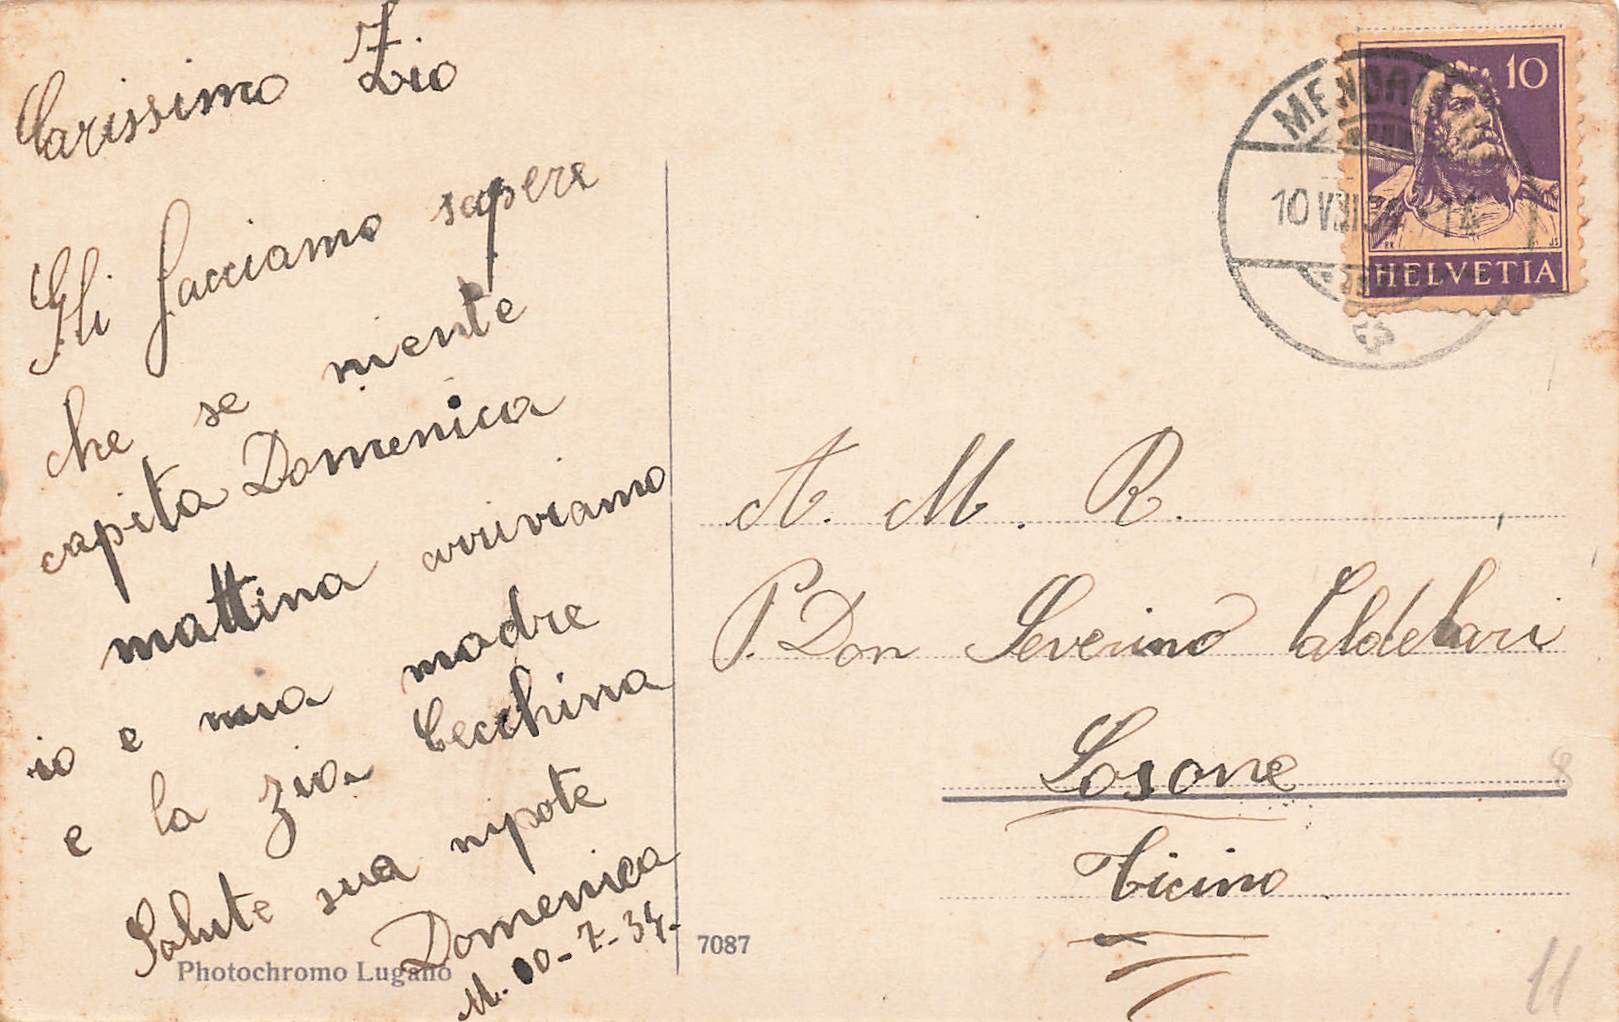 Carissimo Zio
Gli facciamo sapere
che se niente
capita Domenica
mattina arriviamo
io e mia madre
e la zia Cecchina
Salute sua nipote
Domenica
M. 10-7-34.
Photochromo Lugano
7087
10
HELVETIA
10 VIII 34
A. M. R.
P. Don Severino Caldelari
Losone
Ticino
8
11